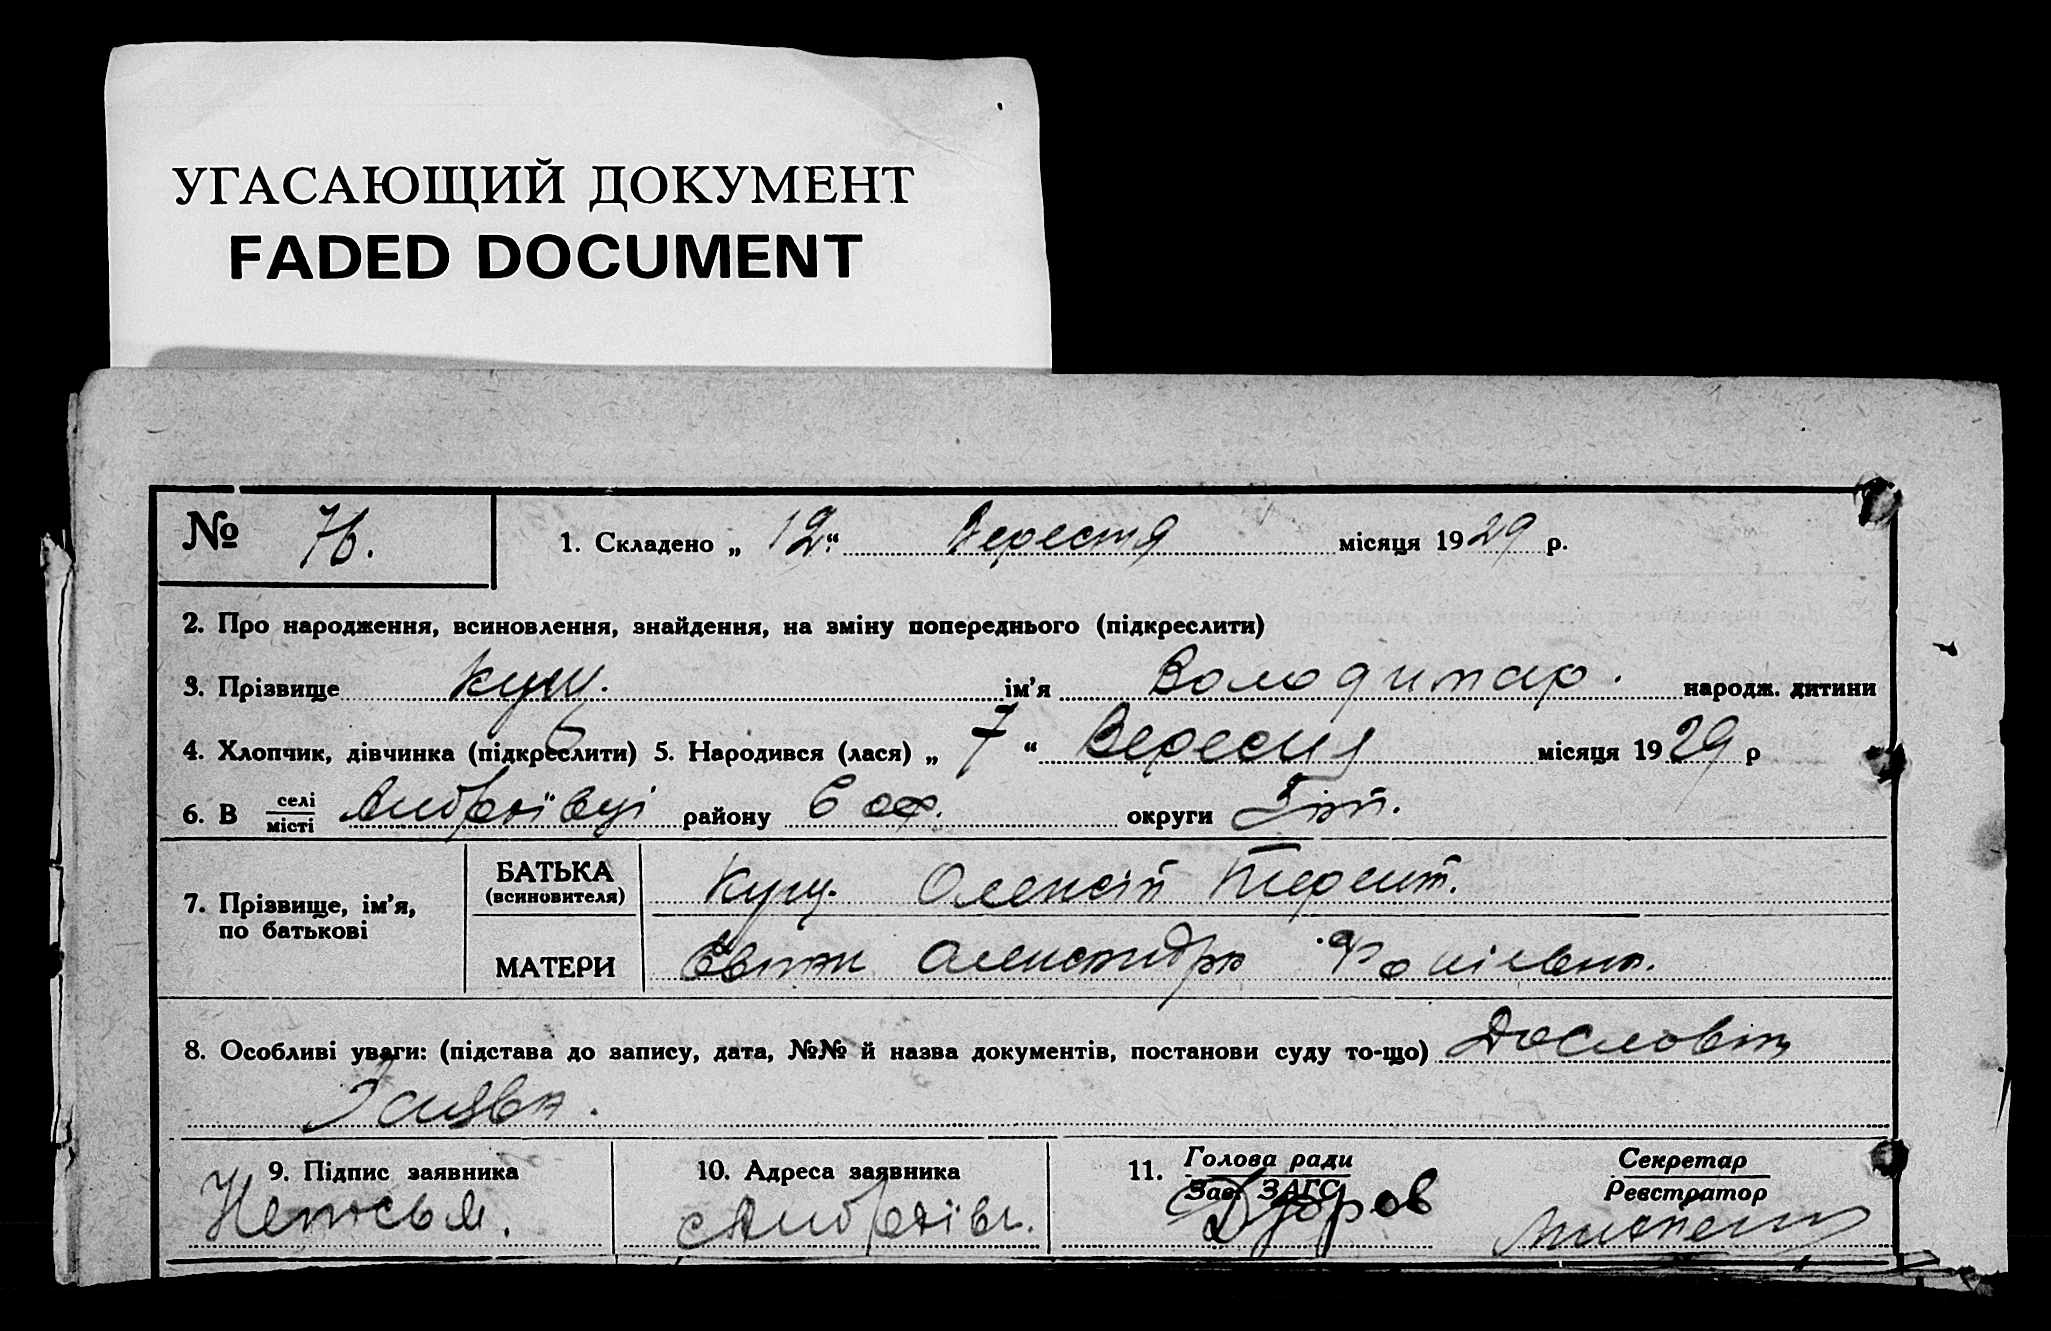 УГАСАЮЩИЙ ДОКУМЕНТ
FADED DOCUMENT
№ 76.
1. Складено „ 12 “ Вересня місяця 1929 р.
2. Про народження, всиновлення, знайдення, на зміну попереднього (підкреслити)
3. Прізвище Кущ. ім’я Володимар. народж. дитини
4. Хлопчик, дівчинка (підкреслити) 5. Народився (лася) „ 7 “ Вересня місяця 1929 р
6. В селі
місті Андреівці району округи
7. Прізвище, ім’я,
по батькові
БАТЬКА
(всиновителя)
Кущ. Олексій Терент.
МАТЕРИ
Олександра
8. Особливі уваги: (підстава до запису, дата, №№ й назва документів, постанови суду то-що)
Заява.
9. Підпис заявника
10. Адреса заявника
11. Голова ради
Зав. ЗАГС
Секретар
Реєстратор